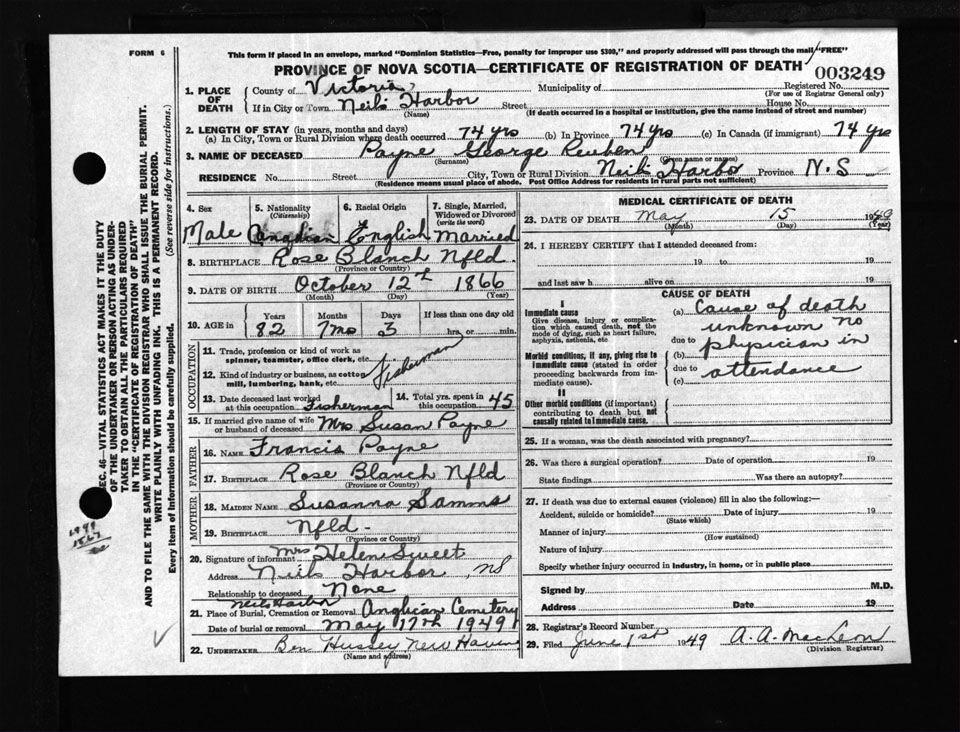 FORM 6
This form if placed in an envelope, marked "Dominion Statistics—Free, penalty for improper use $300," and properly addressed will pass through the mail "FREE"
PROVINCE OF NOVA SCOTIA—CERTIFICATE OF REGISTRATION OF DEATH
003249
1. PLACE OF DEATH
County of Victoria Municipality of Registered No.
(For use of Registrar General only)
If in City or Town Neils Harbor Street House No.
(Name) (If death occurred in a hospital or institution, give the name instead of street and number)
2. LENGTH OF STAY (in years, months and days)
(a) In City, Town or Rural Division where death occurred 74 yrs (b) In Province 74 yrs (c) In Canada (if immigrant) 74 yrs
3. NAME OF DECEASED Payne George Reuben
(Surname) (Given name or names)
RESIDENCE No. Street City, Town or Rural Division Neils Harbor Province N.S
(Residence means usual place of abode. Post Office Address for residents in rural parts not sufficient)
4. Sex Male
5. Nationality (Citizenship) Canadian
6. Racial Origin English
7. Single, Married, Widowed or Divorced (write the word) Married
8. BIRTHPLACE Rose Blanch Nfld.
(Province or Country)
9. DATE OF BIRTH October 12th 1866
(Month) (Day) (Year)
10. AGE in Years Months Days If less than one day old
82 7 mo 3 hrs. or min.
OCCUPATION
11. Trade, profession or kind of work as spinner, teamster, office clerk, etc.
12. Kind of industry or business, as cotton mill, lumbering, bank, etc.
Fisherman
13. Date deceased last worked at this occupation Fisherman
14. Total yrs. spent in this occupation 45
15. If married give name of wife or husband of deceased Mrs Susan Payne
FATHER
16. NAME Francis Payne
17. BIRTHPLACE Rose Blanch Nfld
(Province or Country)
MOTHER
18. MAIDEN NAME Susanna Samms
19. BIRTHPLACE Nfld -
(Province or Country)
20. Signature of informant Mrs Helen Sweet
Address Neils Harbor, NS
Relationship to deceased None
21. Place of Burial, Cremation or Removal Neils Harbor Anglican Cemetery
Date of burial or removal May 17th 1949
22. UNDERTAKER Ben Hussey New Haven
(Name and address)
MEDICAL CERTIFICATE OF DEATH
23. DATE OF DEATH May 15 1949
(Month) (Day) (Year)
24. I HEREBY CERTIFY that I attended deceased from:
19 to 19
and last saw h alive on 19
CAUSE OF DEATH
I
Immediate cause
Give disease, injury or complication which caused death, not the mode of dying, such as heart failure, asphyxia, asthenia, etc
Morbid conditions, if any, giving rise to immediate cause (stated in order proceeding backwards from immediate cause).
II
Other morbid conditions (if important) contributing to death but not causally related to immediate cause.
(a) Cause of death
unknown no
due to physician in
(b)
due to attendance
(c)
25. If a woman, was the death associated with pregnancy?
26. Was there a surgical operation? Date of operation 19
State findings Was there an autopsy?
27. If death was due to external causes (violence) fill in also the following:—
Accident, suicide or homicide? Date of injury 19
(State which)
Manner of injury
(How sustained)
Nature of injury
Specify whether injury occurred in industry, in home, or in public place
Signed by M.D.
Address Date 19
28. Registrar's Record Number
29. Filed June 1st 1949 A. A. MacLeon
(Division Registrar)
SEC. 46—VITAL STATISTICS ACT MAKES IT THE DUTY
OF THE UNDERTAKER OR PERSON ACTING AS UNDER-
TAKER TO OBTAIN ALL THE PARTICULARS REQUIRED
IN THE "CERTIFICATE OF REGISTRATION OF DEATH"
AND TO FILE THE SAME WITH THE DIVISION REGISTRAR WHO SHALL ISSUE THE BURIAL PERMIT.
WRITE PLAINLY WITH UNFADING INK. THIS IS A PERMANENT RECORD.
Every item of Information should be carefully supplied. (See reverse side for instructions.)
1949